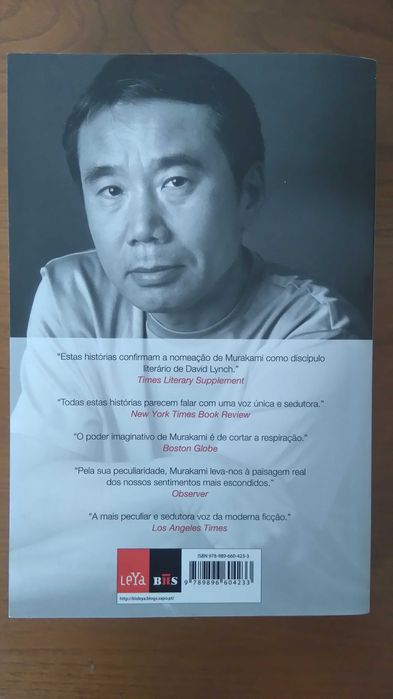 “Estas histórias confirmam a nomeação de Murakami como discípulo
literário de David Lynch.”
Times Literary Supplement
“Todas estas histórias parecem falar com uma voz única e sedutora.”
New York Times Book Review
“O poder imaginativo de Murakami é de cortar a respiração.”
Boston Globe
“Pela sua peculiaridade, Murakami leva-nos à paisagem real
dos nossos sentimentos mais escondidos.”
Observer
“A mais peculiar e sedutora voz da moderna ficção.”
Los Angeles Times
ISBN 978-989-660-423-3
LeYa BIIS
9 789896 604233
http://bisleya.blogs.sapo.pt/